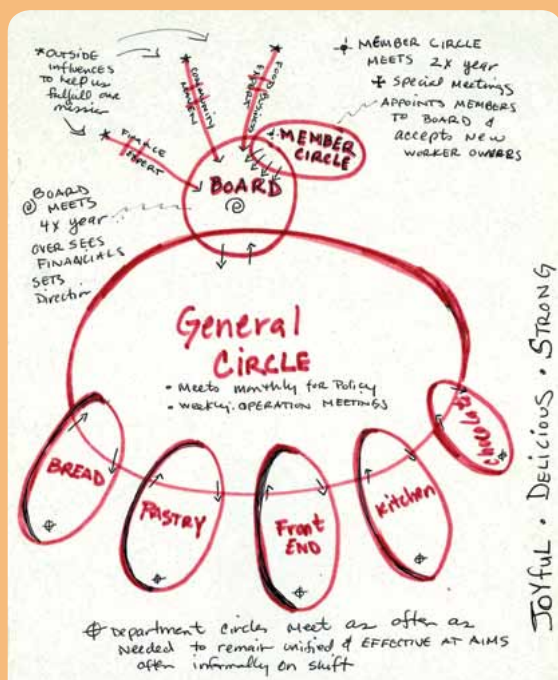 *OUTSIDE
influences
to help us
fulfill our
mission
* Finance
EXPERT
* Community
* Food Business
EXPERT
MEMBER CIRCLE
MEETS 2x year
+ Special Meetings
APPOINTS MEMBERS
TO BOARD &
accepts NEW
WORKER OWNERS
+MEMBER
CIRCLE
BOARD
BOARD
MEETS
4x year
OVER SEES
FINANCIALS
SETS
Direction
General
CIRCLE
• Meets monthly for Policy
• weekly OPERATION MEETINGS
BREAD
PASTRY
Front
END
Kitchen
Chocolate
JOYFUL • DELICIOUS • STRONG
Department circles meet as often as
needed to remain unified & EFFECTIVE AT AIMS
often informally on shift